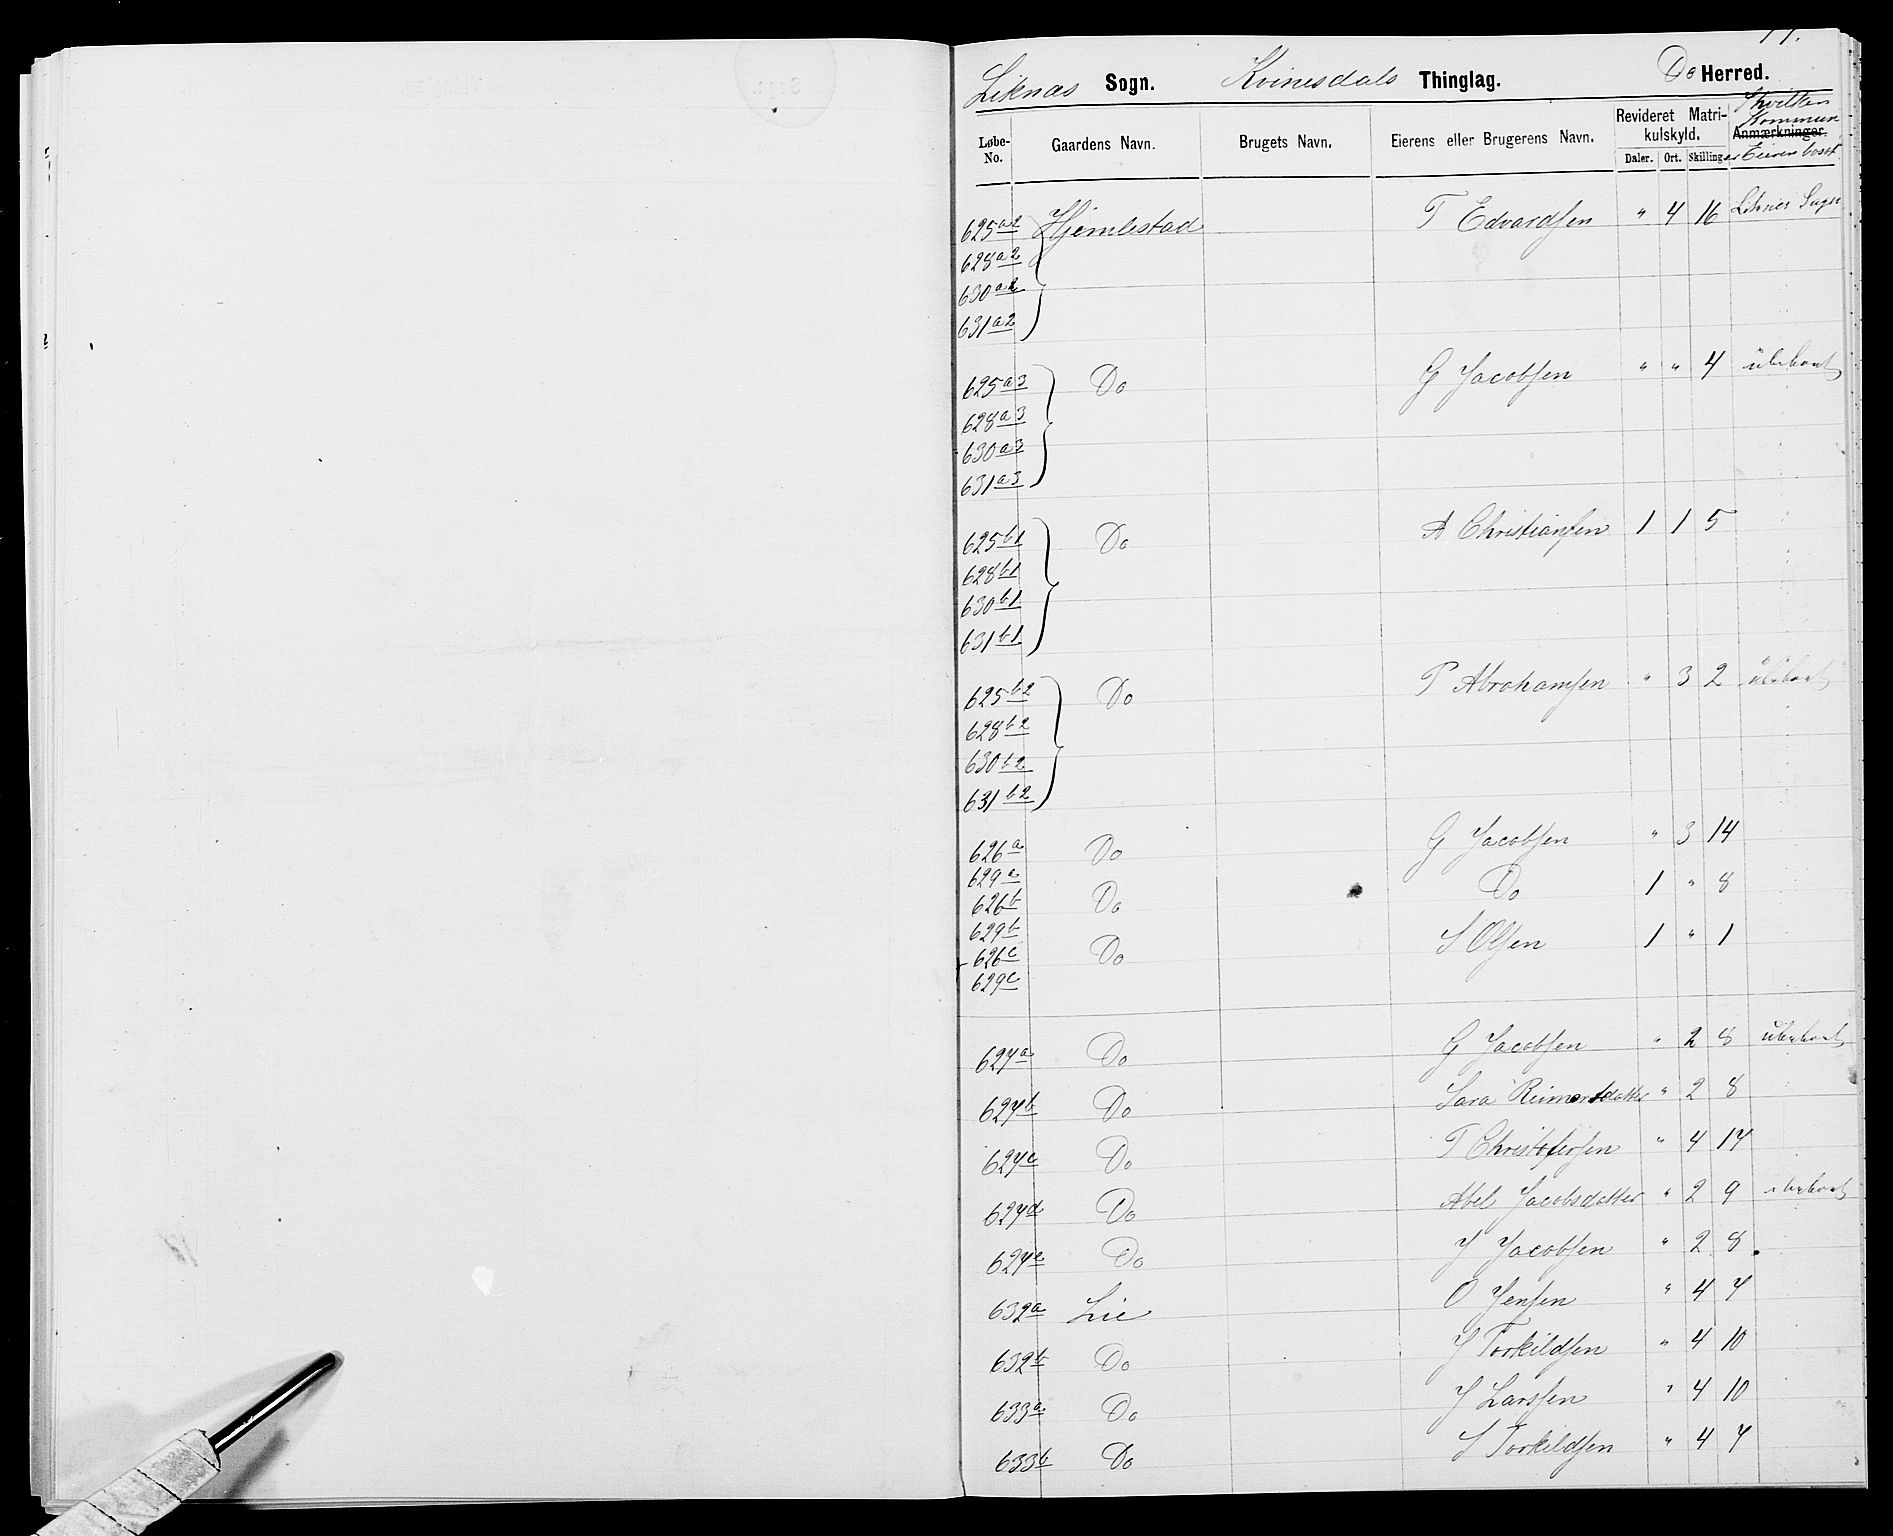 Liknæs Sogn. Kvinesdals Thinglag. Do Herred.
Løbe-No. Gaardens Navn. Brugets Navn. Eierens eller Brugerens Navn. Revideret Matrikulskyld. Daler. Ort. Skilling. I hvilken Kommune Anmærkninger. er Eieren bosat
625a2 Hjemlestad T Edvardsen " 4 16 Liknes Sogn
628a2
630a2
631a2
625a3 Do G Jacobsen " " 4 ubeboet
628a3
630a3
631a3
625b1 Do A Christiansen 1 1 5
628b1
630b1
631b1
625b2 Do P Abrahamsen " 3 2 ubeboet
628b2
630b2
631b2
626a Do G Jacobsen " 3 14
629a
626b Do Do 1 " 8
629b
626c Do S Olsen 1 " 1
629c
627a Do G Jacobsen " 2 8 ubeboet
627b Do Sara Reimersdatter " 2 8
627c Do T Christofersen " 4 17
627d Do Abel Jacobsdatter " 2 9 ubeboet
627e Do J Jacobsen " 2 8
632a Lie O Jensen " 4 7
632b Do J Torkildsen " 4 10
633a Do J Larssen " 4 10
633b Do S Torkildsen " 4 7